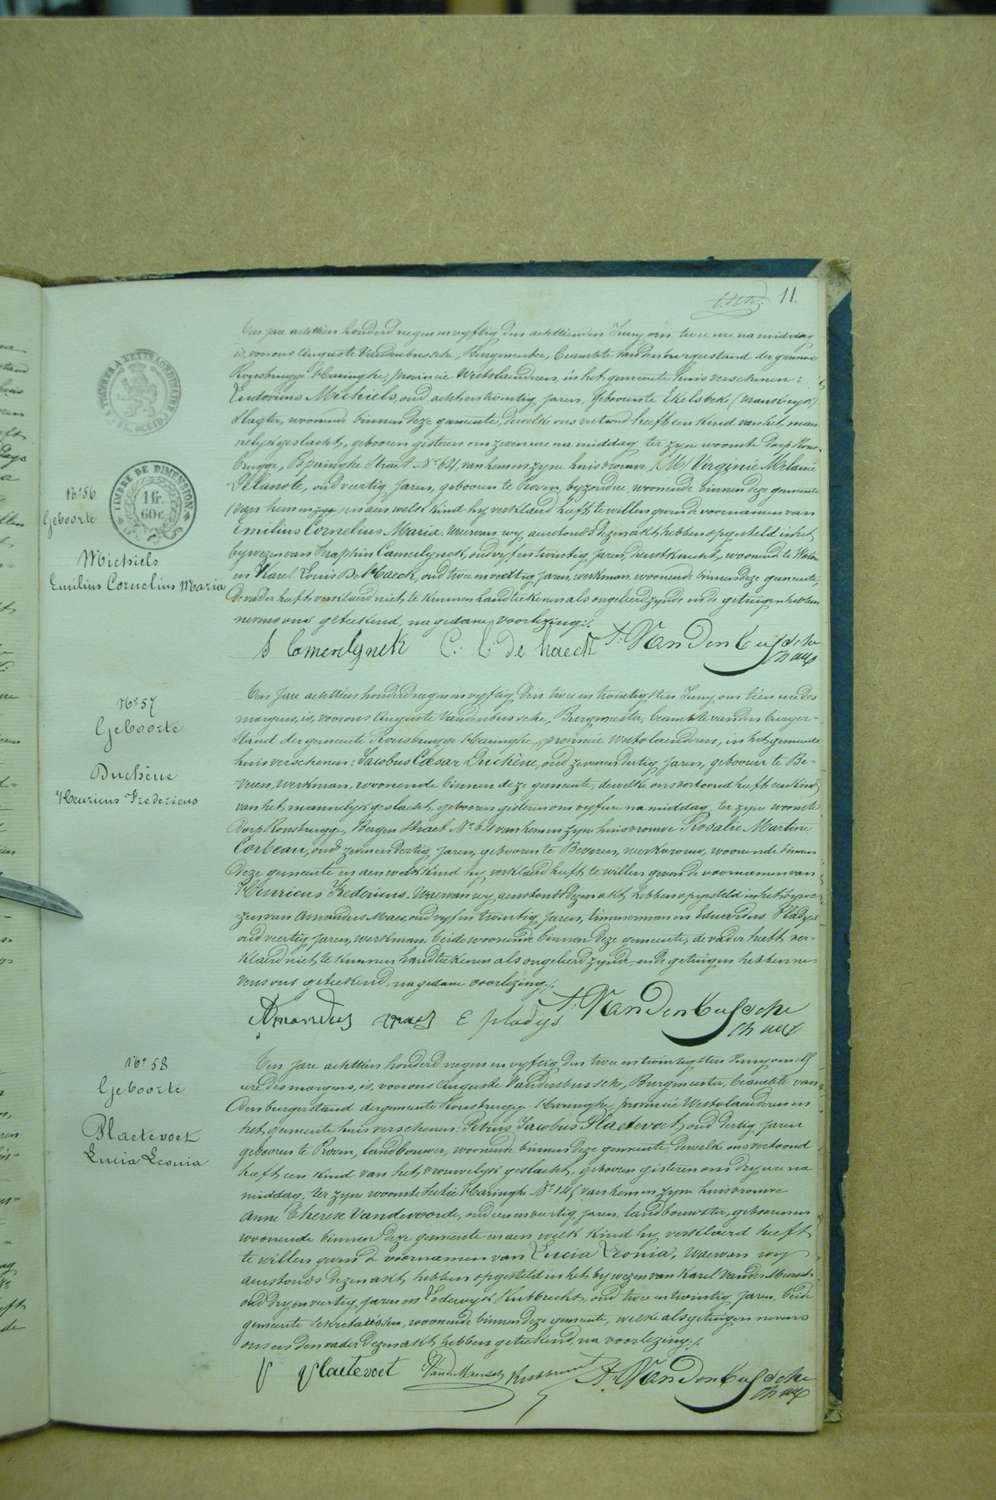 11.
Ten jare achttien honderd negen en vyftig den achttienden Juny om twee ure na middag
is, voor ons Auguste Vandenbussche, Burgmeester, beambte van den burgerstand der gemeente
Rousbrugge Haringhe, provincie Westvlaanderen, in het gemeente huis verschenen:
Ludovicus Michiels, oud acht en twintig jaren, geboren te Ekelsbeke (Frankryk)
slagter, woonende binnen deze gemeente, dewelke ons vertoond heeft een kind van het man-
nelyk geslacht, geboren gisteren om zeven ure na middag ter zyne woonst Dorp Rous-
brugge, Poperinghe Straet No 64, van hem en zyne huisvrouw Virginie Melanie
Delanote, oud veertig jaren, geboren te Proven, byzondere, woonende binnen deze gemeente
en aen welk kind hy verklaard heeft te willen geven de voornamen van
Emilius Cornelius Maria. Waervan wy aenstonds dezen akt hebben opgesteld in het
bywezen van Seraphin Camerlynck, oud vyf en twintig jaren, woonende te
en Karel Louis De Haeck, oud twee en veertig jaren, werkman, woonende binnen deze gemeente,
De vader heeft verklaerd niet te kunnen handteekenen als ongeleerd zynde en de getuigen hebben
nevens ons geteekend, na gedane voorlezing.
S Camerlynck C. L. de haeck A. VanDenbussche
TIMBRE DE DIMENTION
1 fr.
60c.
No 56
Geboorte
Michiels
Emilius Cornelius Maria
Ten jare achttien honderd negen en vyftig den twee en twintigsten Juny om tien ure des
morgens, is, voor ons Auguste Vandenbussche, Burgmeester, beambte van den burger-
stand der gemeente Rousbrugge Haringhe, provincie Westvlaenderen, in het gemeente
huis verschenen: Jacobus Cæsar Duchêne, oud zeven en dertig jaren, geboren te Be-
veren, werkman, woonende binnen deze gemeente, dewelke ons vertoond heeft een kind
van het mannelyk geslacht, geboren gisteren om vyf ure na middag ter zyne woonste
Dorp Rousbrugge, Bergen Straet No 64 van hem en zyne huisvrouwe Rosalie Martine
Corbeau, oud zeven en dertig jaren, geboren te Beveren, werkvrouw, woonende binnen
deze gemeente en aen welk kind hy verklaerd heeft te willen geven de voornamen van
Henricus Fredericus. Waervan wy aenstonds dezen akt hebben opgesteld in het bywe-
zen van Amandus Maes, oud vyf en twintig jaren, timmerman en Eduardus Pladys
oud veertig jaren, werkman, beide woonende binnen deze gemeente, de vader heeft ver-
klaerd niet te kunnen handteekenen als ongeleerd zynde en de getuigen hebben ne-
vens ons geteekend, na gedane voorlezing.
Amandus maes E pladys A. VanDenbussche
No 57
Geboorte
Duchêne
Henricus Fredericus
Ten jare achttien honderd negen en vyftig den twee en twintigsten Juny om elf
ure des morgens, is, voor ons Auguste Vandenbussche, Burgmeester, beambte van
den burgerstand der gemeente Rousbrugge Haringhe, provincie Westvlaanderen in
het gemeente huis verschenen: Petrus Jacobus Plaetevoet, oud dertig jaren
geboren te Proven, landbouwer, woonende binnen deze gemeente, dewelk ons vertoond
heeft een kind van het vrouwelyk geslacht, geboren gisteren om dry ure na
middag, ter zyne woonste Sectie Haringhe No 145 van hem en zyne huisvrouwe
Anne Therese Vandevoorde, oud een en veertig jaren, landbouwster, geboren en
woonende binnen deze gemeente en aen welk kind hy verklaerd heeft
te willen geven de voornamen van Lucia Leonia, Waervan wy
aenstonds dezen akt hebben opgesteld in het bywezen van Karel
oud dry en veertig jaren en Lodewyk Hubbrecht, oud twee en twintig jaren, beide
gemeente Sekretarissen, woonende binnen deze gemeente, welke als getuigen nevens
ons en den vader dezen akt hebben geteekend, na voorlezing.
P Plaetevoet A. VanDenbussche
No 58
Geboorte
Plaetevoet
Lucia Leonia